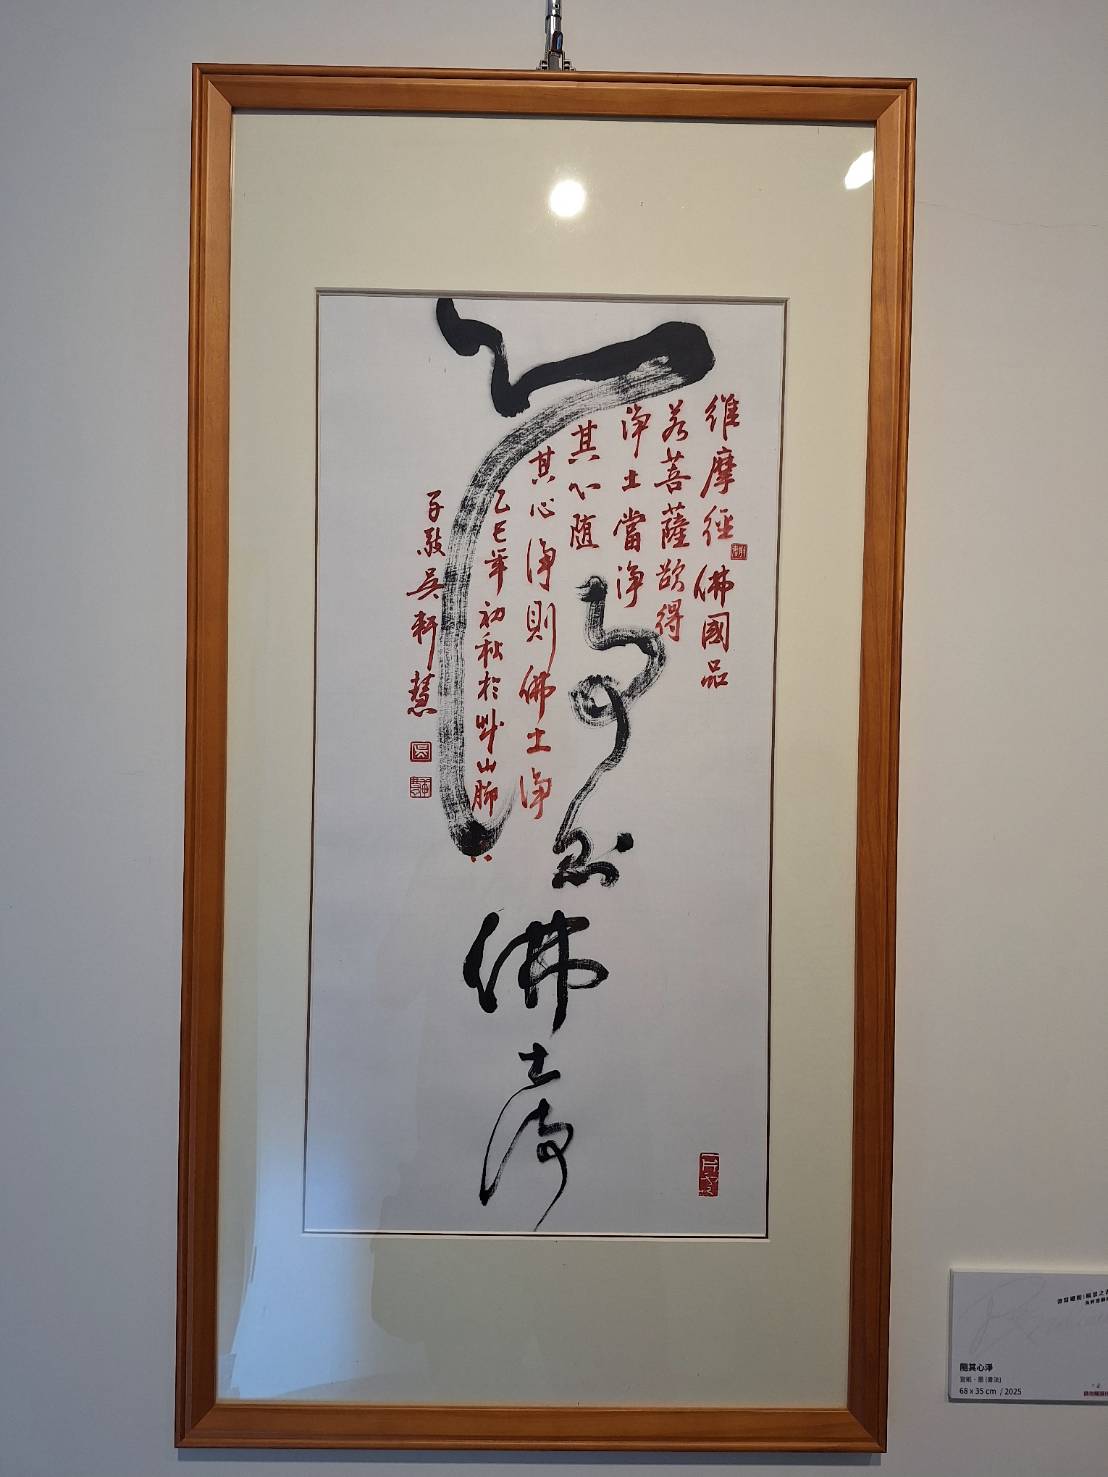 維摩經 佛國品
若菩薩欲得
淨土當淨
其心随
其心淨則佛土淨
乙巳年初秋於艸山腳
子敬吳軒慧
心淨則
佛土淨
隨其心淨
宣紙、墨 (書法)
68 x 35 cm / 2025